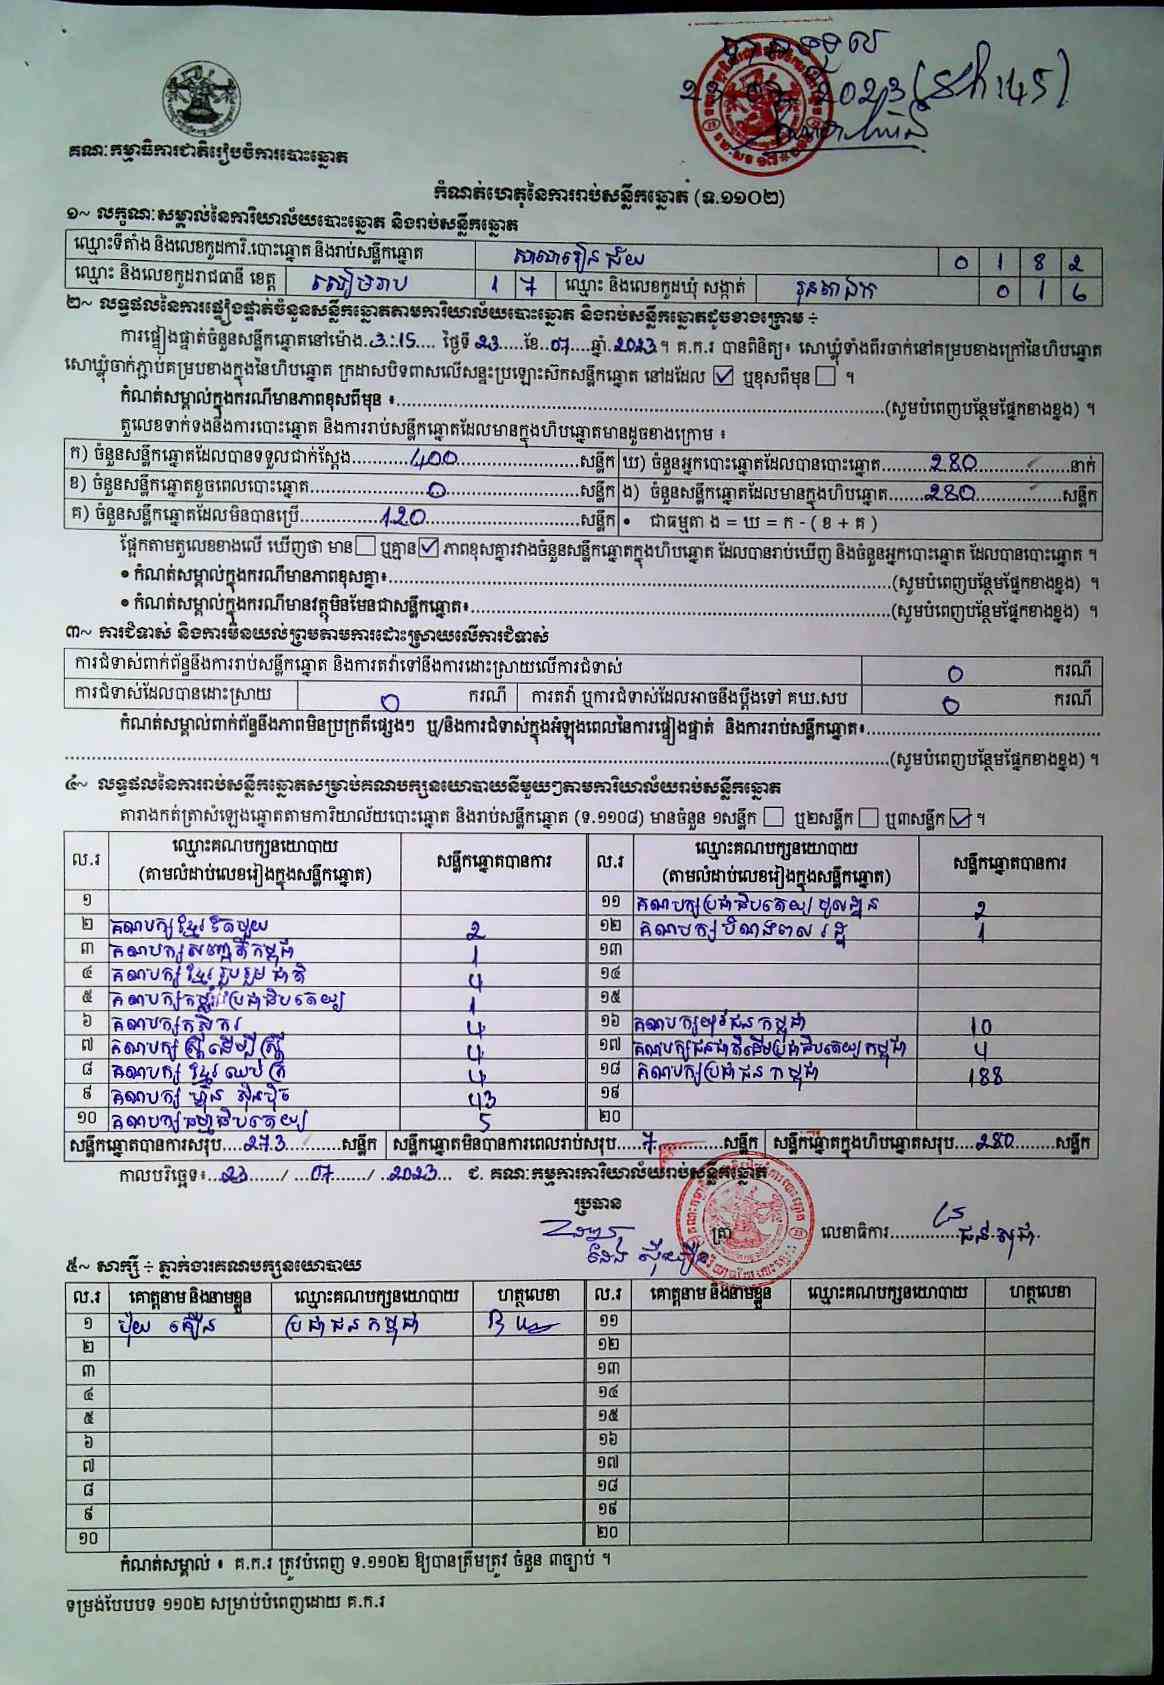 បានទទួល
23 07 2023 (ម៉ោង 14 5)
គណៈកម្មាធិការជាតិរៀបចំការបោះឆ្នោត
កំណត់ហេតុនៃការរាប់សន្លឹកឆ្នោត (ទ.១១០២)
១~ លក្ខណៈសម្គាល់នៃការិយាល័យបោះឆ្នោត និងរាប់សន្លឹកឆ្នោត
ឈ្មោះទីតាំង និងលេខកូដការិ.បោះឆ្នោត និងរាប់សន្លឹកឆ្នោត សាលារៀនជ័យ 0 1 8 2
ឈ្មោះ និងលេខកូដរាជធានី ខេត្ត សៀមរាប 1 7 ឈ្មោះ និងលេខកូដឃុំ សង្កាត់ រុនតាឯក 0 1 6
២~ លទ្ធផលនៃការផ្ទៀងផ្ទាត់ចំនួនសន្លឹកឆ្នោតតាមការិយាល័យបោះឆ្នោត និងរាប់សន្លឹកឆ្នោតដូចខាងក្រោម ÷
ការផ្ទៀងផ្ទាត់ចំនួនសន្លឹកឆ្នោតនៅម៉ោង.3:15.... ថ្ងៃទី 23.....ខែ..07.....ឆ្នាំ. 2023។ គ.ក.រ បានពិនិត្យ៖ សោឃ្លុំទាំងពីរចាក់នៅគម្របខាងក្រៅនៃហិបឆ្នោត
សោឃ្លុំចាក់ភ្ជាប់គម្របខាងក្នុងនៃហិបឆ្នោត ក្រដាសបិទពាសលើសន្ទះប្រឡោះស៊កសន្លឹកឆ្នោត នៅដដែល ☑ ឬខុសពីមុន ☐ ។
កំណត់សម្គាល់ក្នុងករណីមានភាពខុសពីមុន ៖........(សូមបំពេញបន្ថែមផ្នែកខាងខ្នង) ។
តួលេខទាក់ទងនឹងការបោះឆ្នោត និងការរាប់សន្លឹកឆ្នោតដែលមានក្នុងហិបឆ្នោតមានដូចខាងក្រោម ៖
ក) ចំនួនសន្លឹកឆ្នោតដែលបានទទួលជាក់ស្តែង........400........សន្លឹក ឃ) ចំនួនអ្នកបោះឆ្នោតដែលបានបោះឆ្នោត........280........នាក់
ខ) ចំនួនសន្លឹកឆ្នោតខូចពេលបោះឆ្នោត........0........សន្លឹក ង) ចំនួនសន្លឹកឆ្នោតដែលមានក្នុងហិបឆ្នោត........280........សន្លឹក
គ) ចំនួនសន្លឹកឆ្នោតដែលមិនបានប្រើ........120........សន្លឹក • ជាធម្មតា ង = ឃ = ក - ( ខ + គ )
ផ្អែកតាមតួលេខខាងលើ ឃើញថា មាន ☐ ឬគ្មាន ☑ ភាពខុសគ្នារវាងចំនួនសន្លឹកឆ្នោតក្នុងហិបឆ្នោត ដែលបានរាប់ឃើញ និងចំនួនអ្នកបោះឆ្នោត ដែលបានបោះឆ្នោត ។
• កំណត់សម្គាល់ក្នុងករណីមានភាពខុសគ្នា៖........(សូមបំពេញបន្ថែមផ្នែកខាងខ្នង) ។
• កំណត់សម្គាល់ក្នុងករណីមានវត្ថុមិនមែនជាសន្លឹកឆ្នោត៖........(សូមបំពេញបន្ថែមផ្នែកខាងខ្នង) ។
៣~ ការជំទាស់ និងការមិនយល់ព្រមតាមការដោះស្រាយលើការជំទាស់
ការជំទាស់ពាក់ព័ន្ធនឹងការរាប់សន្លឹកឆ្នោត និងការតវ៉ាទៅនឹងការដោះស្រាយលើការជំទាស់ 0 ករណី
ការជំទាស់ដែលបានដោះស្រាយ 0 ករណី ការតវ៉ា ឬការជំទាស់ដែលអាចនឹងប្តឹងទៅ គឃ.សប 0 ករណី
កំណត់សម្គាល់ពាក់ព័ន្ធនឹងភាពមិនប្រក្រតីផ្សេងៗ ឬ/និងការជំទាស់ក្នុងអំឡុងពេលនៃការផ្ទៀងផ្ទាត់ និងការរាប់សន្លឹកឆ្នោត៖........
........(សូមបំពេញបន្ថែមផ្នែកខាងខ្នង) ។
៤~ លទ្ធផលនៃការរាប់សន្លឹកឆ្នោតសម្រាប់គណបក្សនយោបាយនីមួយៗតាមការិយាល័យរាប់សន្លឹកឆ្នោត
តារាងកត់ត្រាសំឡេងឆ្នោតតាមការិយាល័យបោះឆ្នោត និងរាប់សន្លឹកឆ្នោត (ទ.១១០៨) មានចំនួន ១សន្លឹក ☐ ឬ២សន្លឹក ☐ ឬ៣សន្លឹក ☑ ។
ល.រ ឈ្មោះគណបក្សនយោបាយ (តាមលំដាប់លេខរៀងក្នុងសន្លឹកឆ្នោត) សន្លឹកឆ្នោតបានការ ល.រ ឈ្មោះគណបក្សនយោបាយ (តាមលំដាប់លេខរៀងក្នុងសន្លឹកឆ្នោត) សន្លឹកឆ្នោតបានការ
១ ១១ គណបក្សប្រជាធិបតេយ្យមូលដ្ឋាន 2
២ គណបក្សខ្មែរតែមួយ 2 ១២ គណបក្សបំណងពលរដ្ឋ 1
៣ គណបក្សសញ្ជាតិកម្ពុជា 1 ១៣
៤ គណបក្សខ្មែររួបរួមជាតិ 4 ១៤
៥ គណបក្សកម្លាំងប្រជាធិបតេយ្យ 1 ១៥
៦ គណបក្សកសិករ 4 ១៦ គណបក្សយុវជនកម្ពុជា 10
៧ គណបក្សស្ត្រីដើម្បីស្ត្រី 4 ១៧ គណបក្សជនជាតិដើមប្រជាធិបតេយ្យកម្ពុជា 4
៨ គណបក្សខ្មែរឈប់ក្រ 4 ១៨ គណបក្សប្រជាជនកម្ពុជា 188
៩ គណបក្ស ហ្វ៊ុនស៊ិនប៉ិច 43 ១៩
១០ គណបក្សធម្មាធិបតេយ្យ 5 ២០
សន្លឹកឆ្នោតបានការសរុប....273........សន្លឹក សន្លឹកឆ្នោតមិនបានការពេលរាប់សរុប.....7........សន្លឹក សន្លឹកឆ្នោតក្នុងហិបឆ្នោតសរុប....280........សន្លឹក
កាលបរិច្ឆេទ៖...23....../ ...07....../ ..2023... ជ. គណៈកម្មការការិយាល័យរាប់សន្លឹកឆ្នោត
ប្រធាន
ត្រា លេខាធិការ..............ជន់.សុជា.
៥~ សាក្សី ÷ ភ្នាក់ងារគណបក្សនយោបាយ
ល.រ គោត្តនាម និងនាមខ្លួន ឈ្មោះគណបក្សនយោបាយ ហត្ថលេខា ល.រ គោត្តនាម និងនាមខ្លួន ឈ្មោះគណបក្សនយោបាយ ហត្ថលេខា
១ ប៉ុយ គឿន ប្រជាជនកម្ពុជា ១១
២ ១២
៣ ១៣
៤ ១៤
៥ ១៥
៦ ១៦
៧ ១៧
៨ ១៨
៩ ១៩
១០ ២០
កំណត់សម្គាល់ ៖ គ.ក.រ ត្រូវបំពេញ ទ.១១០២ ឱ្យបានត្រឹមត្រូវ ចំនួន ៣ច្បាប់ ។
ទម្រង់បែបបទ ១១០២ សម្រាប់បំពេញដោយ គ.ក.រ